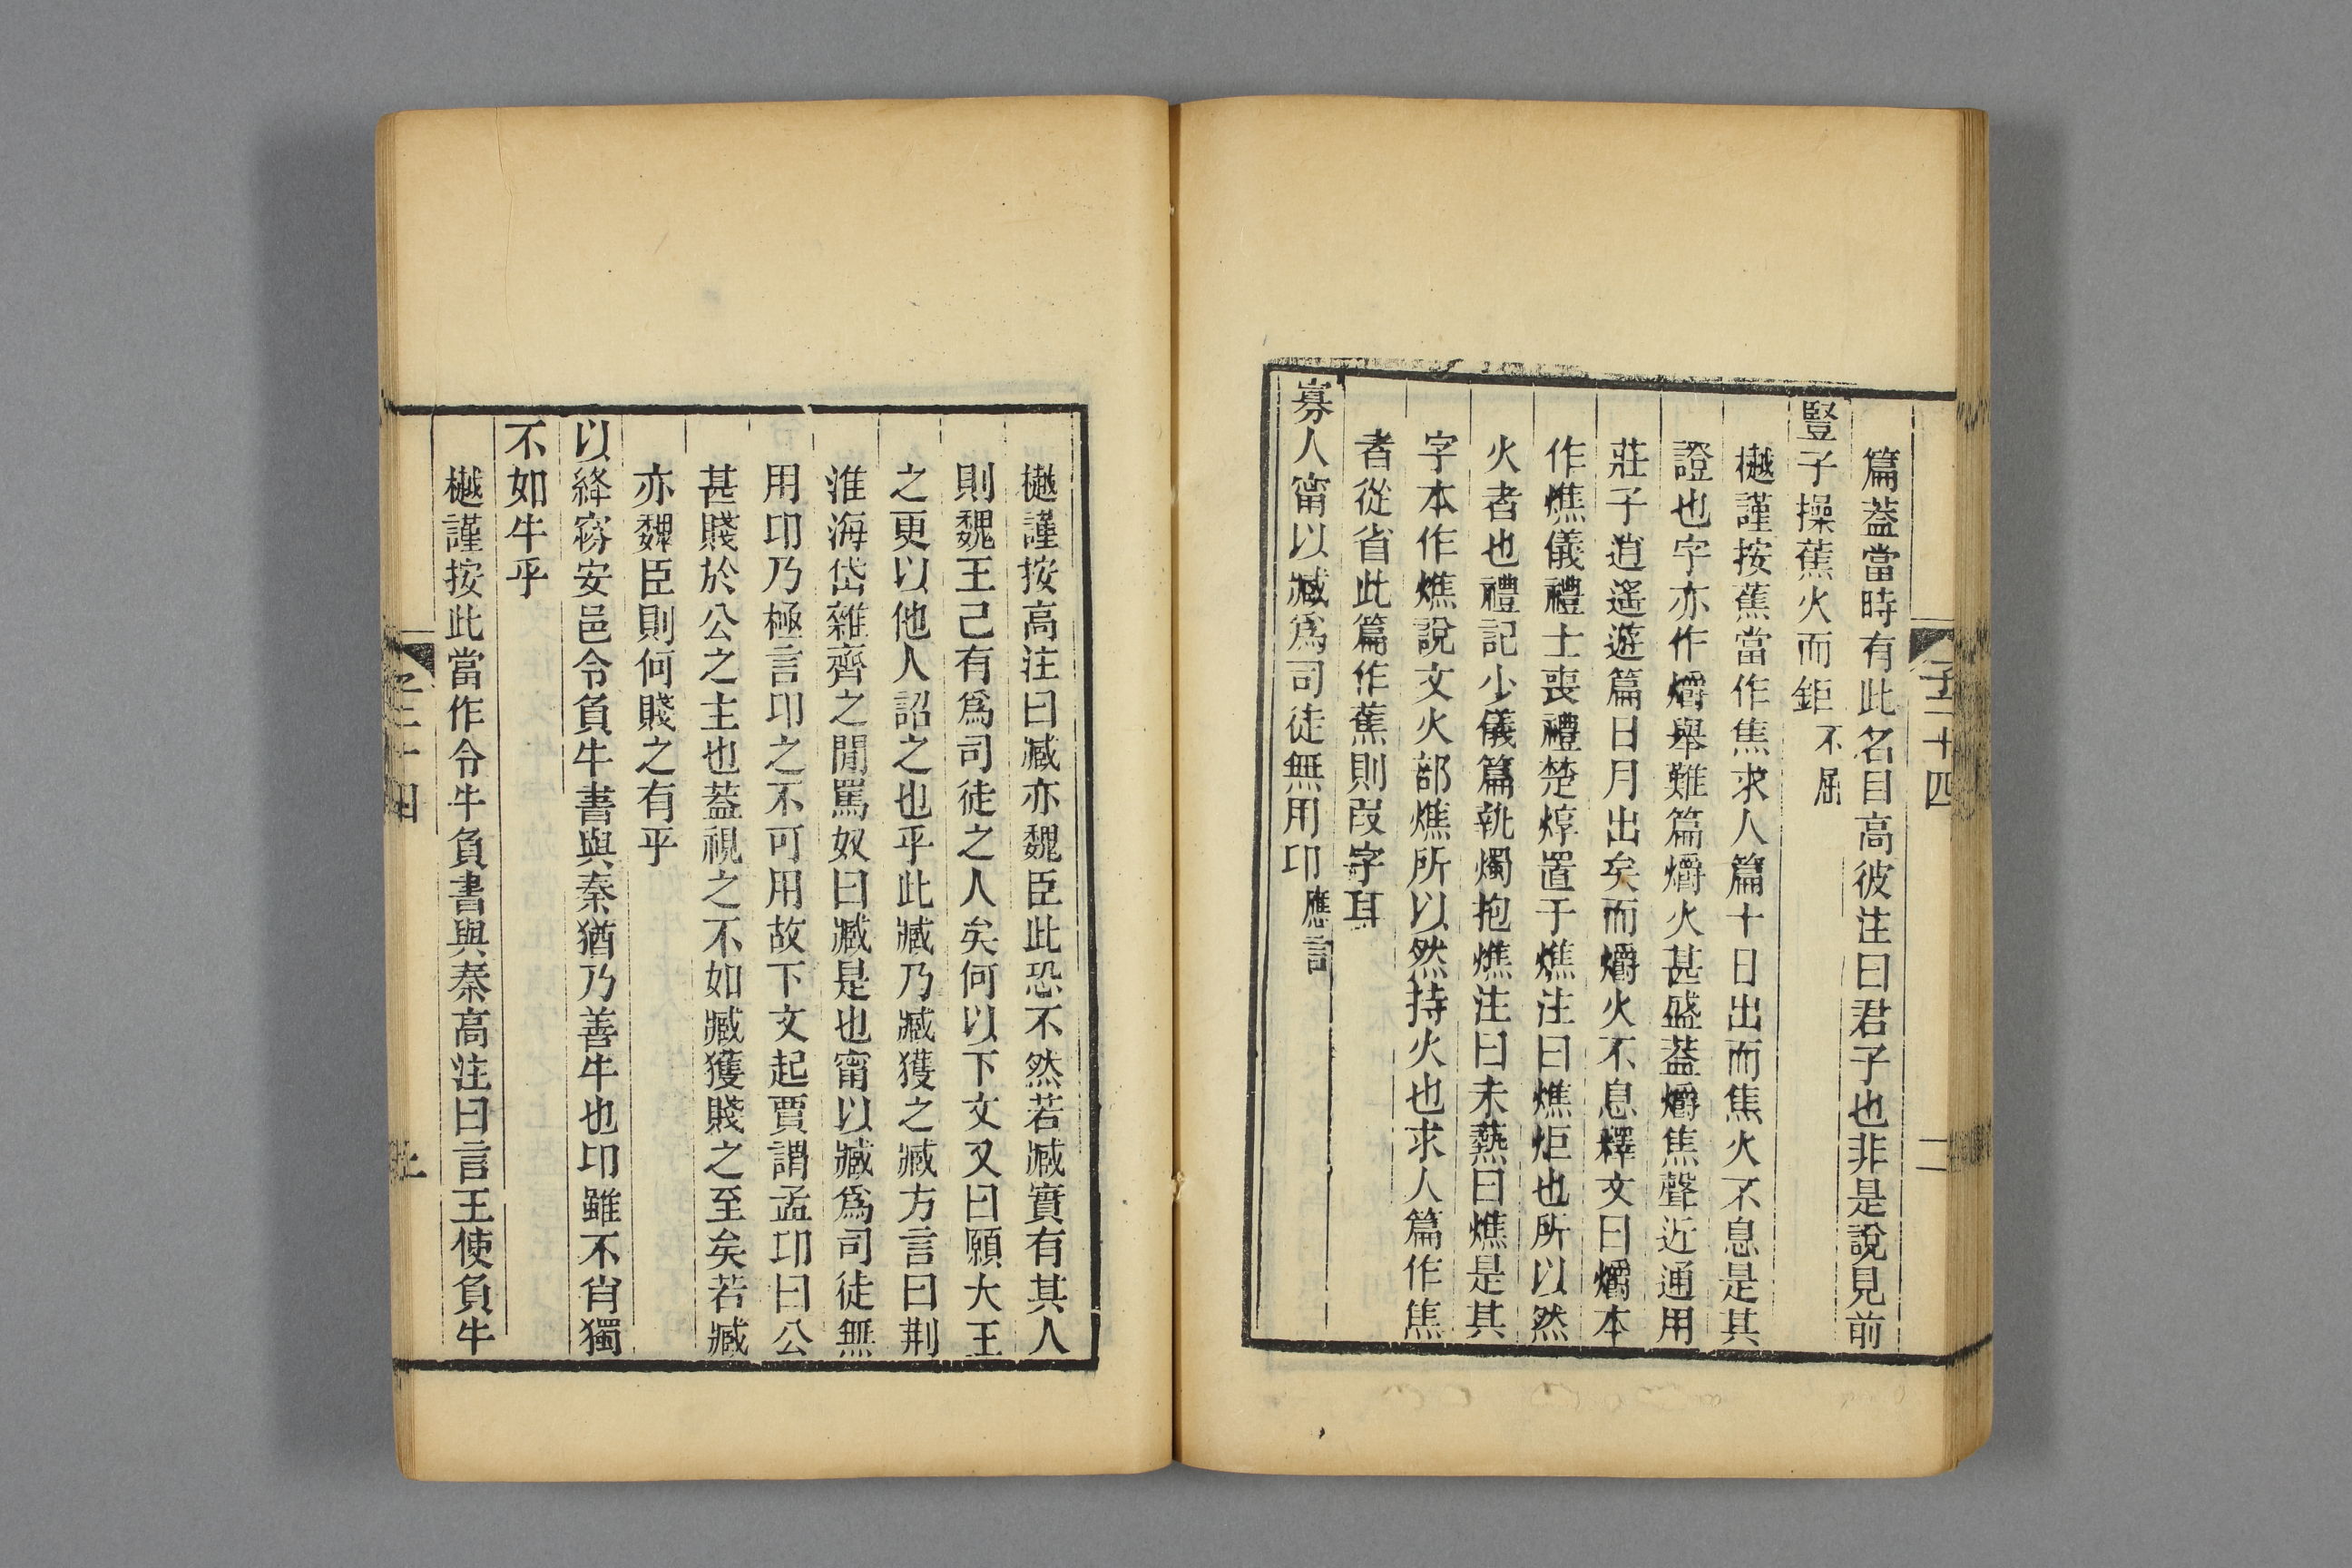 子二十四
二
篇葢當時有此名目高彼注曰君子也非是說見前
豎子操蕉火而鉅不屈
樾謹按蕉當作焦求人篇十日出而焦火不息是其
證也字亦作爝舉難篇爝火甚盛葢爝焦聲近通用
莊子逍遙遊篇日月出矣而爝火不息釋文曰爝本
作燋儀禮士喪禮楚焞置于燋注曰燋炬也所以然
火者也禮記少儀篇執燭抱燋注曰未爇曰燋是其
字本作燋說文火部燋所以然持火也求人篇作焦
者從省此篇作蕉則叚字耳
寡人甯以臧爲司徒無用卬應言
樾謹按高注曰臧亦魏臣此恐不然若臧實有其人
則魏王己有爲司徒之人矣何以下文又曰願大王
之更以他人詔之也乎此臧乃臧獲之臧方言曰荆
淮海岱雜齊之閒罵奴曰臧是也甯以臧爲司徒無
用卬乃極言卬之不可用故下文起賈謂孟卬曰公
甚賤於公之主也葢視之不如臧獲賤之至矣若臧
亦魏臣則何賤之有乎
以絳窌安邑令負牛書與秦猶乃善牛也卬雖不肖獨
不如牛乎
樾謹按此當作令牛負書與秦高注曰言王使負牛
子二十四